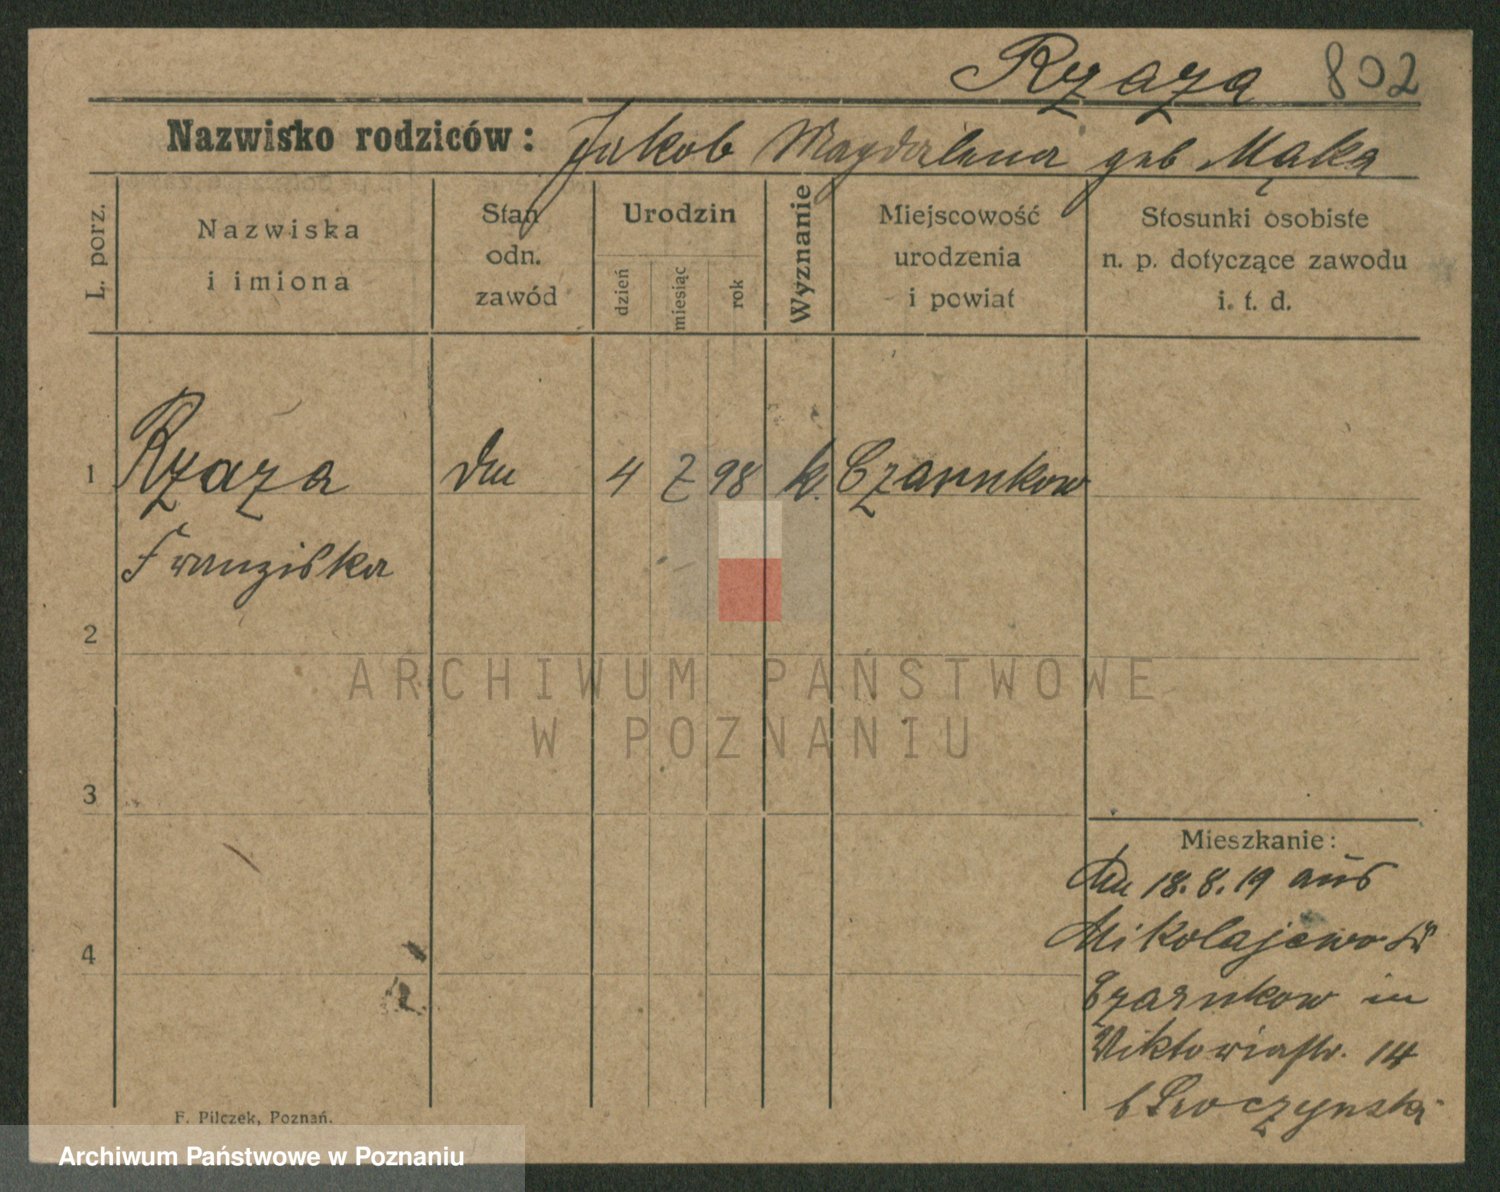 Rzaza 802
Nazwisko rodziców: Jakob Magdalena geb Mąka
L. porz.
Nazwiska
i imiona
Stan
odn.
zawód
Urodzin
dzień
miesiąc
rok
Wyznanie
Miejscowość
urodzenia
i powiat
Stosunki osobiste
n. p. dotyczące zawodu
i. t. d.
1 Rzaza 4 2 98 k. Czarnkow
Franziska
2
3
4
Mieszkanie:
18.8.19 aus
Mikolajewo
Czarnkow in
Viktoriastr. 14
F. Pilczek, Poznań.
ARCHIWUM PAŃSTWOWE
W POZNANIU
Archiwum Państwowe w Poznaniu